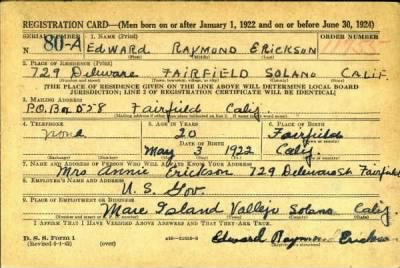 REGISTRATION CARD—(Men born on or after January 1, 1922 and on or before June 30, 1924)
SERIAL NUMBER 1. NAME (Print) ORDER NUMBER
N 80-A EDWARD RAYMOND ERICKSON
(First) (Middle) (Last)
2. PLACE OF RESIDENCE (Print)
729 Deleware FAIRFIELD SOLANO CALIF.
(Number and street) (Town, township, village, or city) (County) (State)
[THE PLACE OF RESIDENCE GIVEN ON THE LINE ABOVE WILL DETERMINE LOCAL BOARD
JURISDICTION; LINE 2 OF REGISTRATION CERTIFICATE WILL BE IDENTICAL]
3. MAILING ADDRESS
P.O. Box 578 Fairfield Calif.
[Mailing address if other than place indicated on line 2. If same insert word same]
4. TELEPHONE 5. AGE IN YEARS 6. PLACE OF BIRTH
none 20 Fairfield
DATE OF BIRTH (Town or county)
May 3 1922 Calif.
(Exchange) (Number) (Mo.) (Day) (Yr.) (State or country)
7. NAME AND ADDRESS OF PERSON WHO WILL ALWAYS KNOW YOUR ADDRESS
Mrs Annie Erickson 729 Delaware St Fairfield
8. EMPLOYER'S NAME AND ADDRESS
U. S. Gov.
9. PLACE OF EMPLOYMENT OR BUSINESS
Mare Island Vallejo Solano Calif.
(Number and street or R. F. D. number) (Town) (County) (State)
I AFFIRM THAT I HAVE VERIFIED ABOVE ANSWERS AND THAT THEY ARE TRUE.
D. S. S. Form 1
(Revised 6-1-42) (over)
Edward Raymond Erickson
(Registrant's signature)